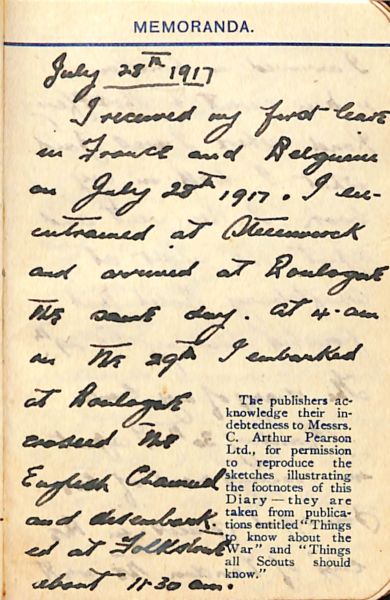 MEMORANDA.
July 28th 1917
I received my first leave
in France and Belgium
on July 28th, 1917. I en-
entrained at Steenwerck
and arrived at Boulogne
the same day. At 4. am
on the 29th I embarked
at Boulogne
crossed the
English Channel
and disembark.
ed at Folkstone
about 11-30 am.
The publishers ac-
knowledge their in-
debtedness to Messrs.
C. Arthur Pearson
Ltd., for permission
to reproduce the
sketches illustrating
the footnotes of this
Diary—they are
taken from publica-
tions entitled "Things
to know about the
War" and "Things
all Scouts should
know."